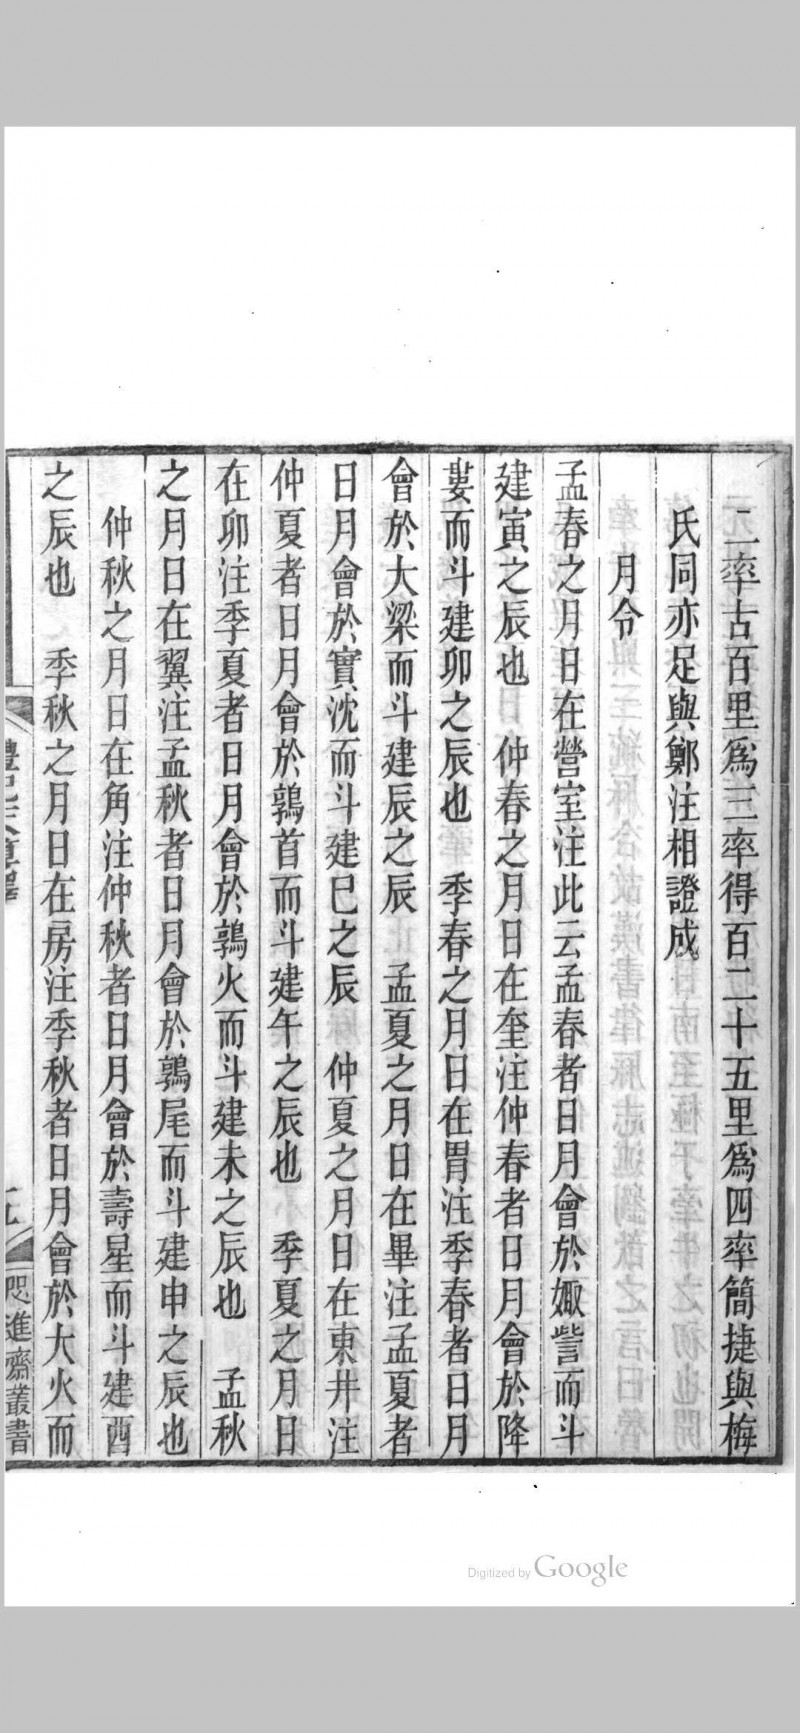 二率古百里爲三率得百二十五里爲四率簡捷與梅
氏同亦足與鄭注相證成
月令
孟春之月日在營室注此云孟春者日月會於娵訾而斗
建寅之辰也　仲春之月日在奎注仲春者日月會於降
婁而斗建卯之辰也　季春之月日在胃注季春者日月
會於大梁而斗建辰之辰　孟夏之月日在畢注孟夏者
日月會於實沈而斗建巳之辰　仲夏之月日在東井注
仲夏者日月會於鶉首而斗建午之辰也　季夏之月日
在卯注季夏者日月會於鶉火而斗建未之辰也　孟秋
之月日在翼注孟秋者日月會於鶉尾而斗建申之辰也
仲秋之月日在角注仲秋者日月會於壽星而斗建酉
之辰也　季秋之月日在房注季秋者日月會於大火而
咫進齋叢書
Digitized by Google